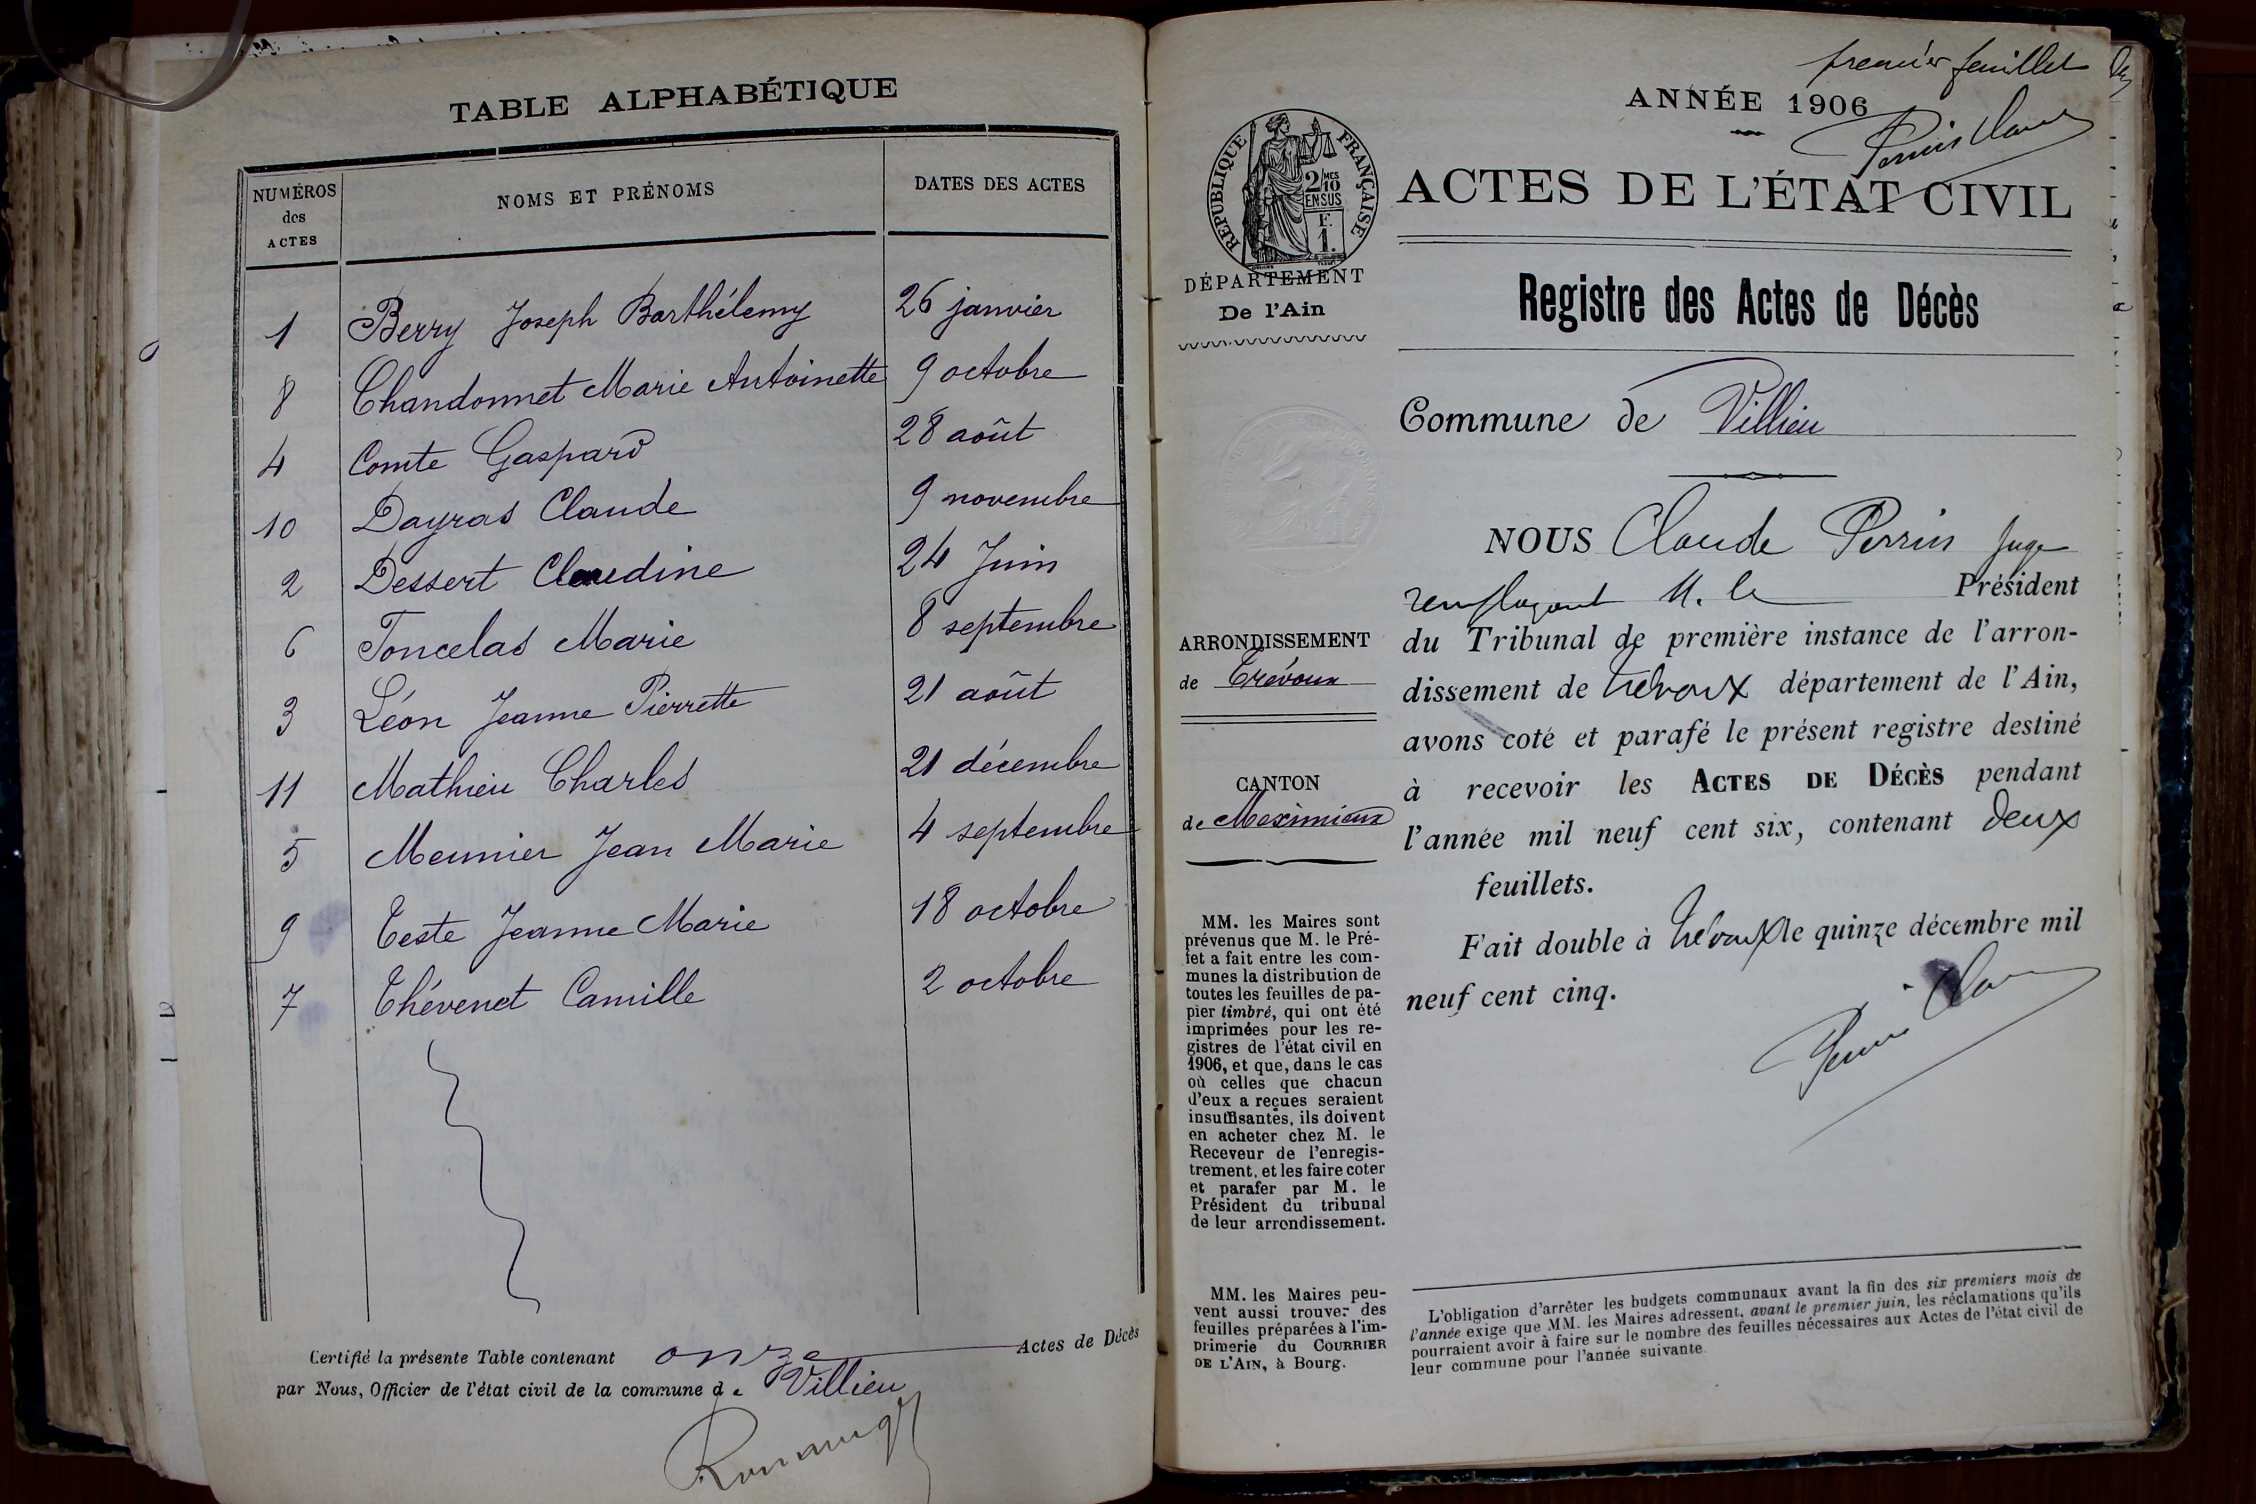 TABLE ALPHABÉTIQUE
NUMÉROS des ACTES
NOMS ET PRÉNOMS
DATES DES ACTES
1 Berry Joseph Barthélemy 26 janvier
8 Chandonnet Marie Antoinette 9 octobre
4 Comte Gaspard 28 août
10 Dayras Claude 9 novembre
2 Dessert Claudine 24 Juin
6 Joncelas Marie 8 septembre
3 Léon Jeanne Pierrette 21 août
11 Mathieu Charles 21 décembre
5 Meunier Jean Marie 4 septembre
9 Teste Jeanne Marie 18 octobre
7 Thévenet Camille 2 octobre
Certifié la présente Table contenant onze Actes de Décès
par Nous, Officier de l'état civil de la commune de Villieu
premier feuillet
ANNÉE 1906
Perrin Claude
RÉPUBLIQUE FRANÇAISE
2/10 MES
EN SUS
F.
1.
ACTES DE L'ÉTAT CIVIL
DÉPARTEMENT
De l'Ain
Registre des Actes de Décès
Commune de Villieu
NOUS Claude Perrin Juge
remplaçant M. le Président
du Tribunal de première instance de l'arron-
dissement de Trévoux département de l'Ain,
avons coté et parafé le présent registre destiné
à recevoir les ACTES DE DÉCÈS pendant
l'année mil neuf cent six, contenant deux
feuillets.
Fait double à Trévoux le quinze décembre mil
neuf cent cinq.
Perrin Claude
ARRONDISSEMENT
de Trévoux
CANTON
de Meximieux
MM. les Maires sont
prévenus que M. le Pré-
fet a fait entre les com-
munes la distribution de
toutes les feuilles de pa-
pier timbré, qui ont été
imprimées pour les re-
gistres de l'état civil en
1906, et que, dans le cas
où celles que chacun
d'eux a reçues seraient
insuffisantes, ils doivent
en acheter chez M. le
Receveur de l'enregis-
trement, et les faire coter
et parafer par M. le
Président du tribunal
de leur arrondissement.
MM. les Maires peu-
vent aussi trouver des
feuilles préparées à l'im-
primerie du COURRIER
DE L'AIN, à Bourg.
L'obligation d'arrêter les budgets communaux avant la fin des six premiers mois de
l'année exige que MM. les Maires adressent, avant le premier juin, les réclamations qu'ils
pourraient avoir à faire sur le nombre des feuilles nécessaires aux Actes de l'état civil de
leur commune pour l'année suivante.